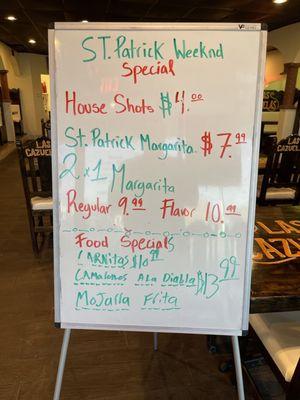 ST. Patrick Weeknd
Special
House Shots $4.00
St. Patrick Margarita $7.99
2x1 Margarita
Regular 9.99 Flavor 10.99
Food Specials
CARNitas $10.99
CAMaRONes A La Diabla $13.99
MoJarra Frita
LAS
CAZUELAS